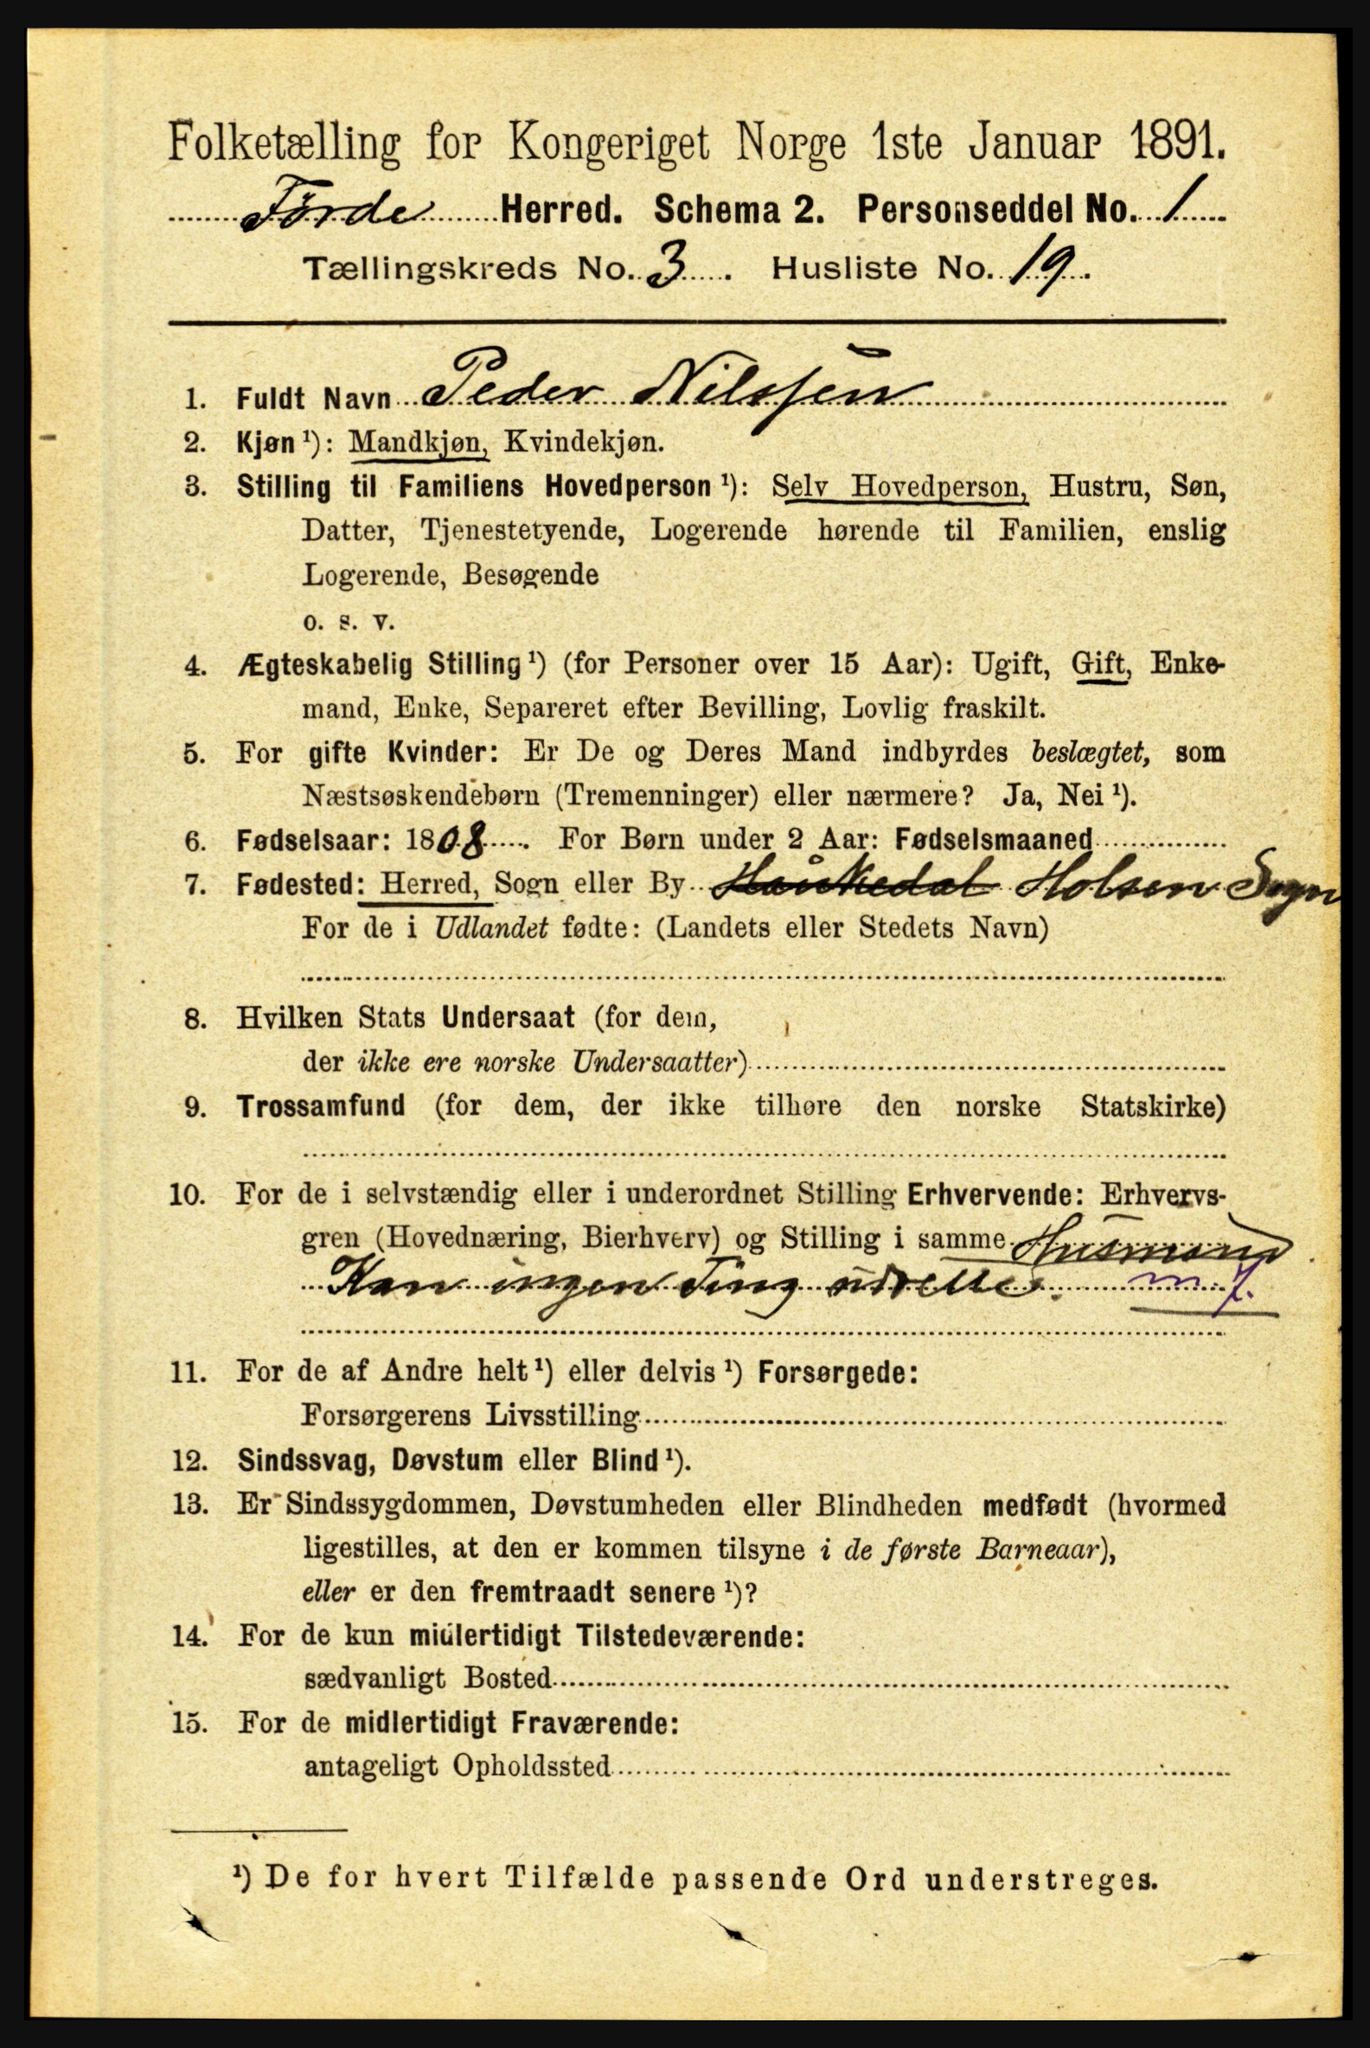 Folketælling for Kongeriget Norge 1ste Januar 1891.
Førde Herred. Schema 2. Personseddel No. 1
Tællingskreds No. 3. Husliste No. 19.
1. Fuldt Navn Peder Nilssen
2. Kjøn ¹): Mandkjøn, Kvindekjøn.
3. Stilling til Familiens Hovedperson ¹): Selv Hovedperson, Hustru, Søn,
Datter, Tjenestetyende, Logerende hørende til Familien, enslig
Logerende, Besøgende
o. s. v.
4. Ægteskabelig Stilling ¹) (for Personer over 15 Aar): Ugift, Gift, Enke-
mand, Enke, Separeret efter Bevilling, Lovlig fraskilt.
5. For gifte Kvinder: Er De og Deres Mand indbyrdes beslægtet, som
Næstsøskendebørn (Tremenninger) eller nærmere? Ja, Nei ¹).
6. Fødselsaar: 1808. For Børn under 2 Aar: Fødselsmaaned
7. Fødested: Herred, Sogn eller By Haukedal Holsen Sogn
For de i Udlandet fødte: (Landets eller Stedets Navn)
8. Hvilken Stats Undersaat (for dem,
der ikke ere norske Undersaatter)
9. Trossamfund (for dem, der ikke tilhøre den norske Statskirke)
10. For de i selvstændig eller i underordnet Stilling Erhvervende: Erhvervs-
gren (Hovednæring, Bierhverv) og Stilling i samme Husmand
Kan ingen Ting udrette. m. J.
11. For de af Andre helt ¹) eller delvis ¹) Forsørgede:
Forsørgerens Livsstilling
12. Sindssvag, Døvstum eller Blind ¹).
13. Er Sindssygdommen, Døvstumheden eller Blindheden medfødt (hvormed
ligestilles, at den er kommen tilsyne i de første Barneaar),
eller er den fremtraadt senere ¹)?
14. For de kun midlertidigt Tilstedeværende:
sædvanligt Bosted
15. For de midlertidigt Fraværende:
antageligt Opholdssted
¹) De for hvert Tilfælde passende Ord understreges.